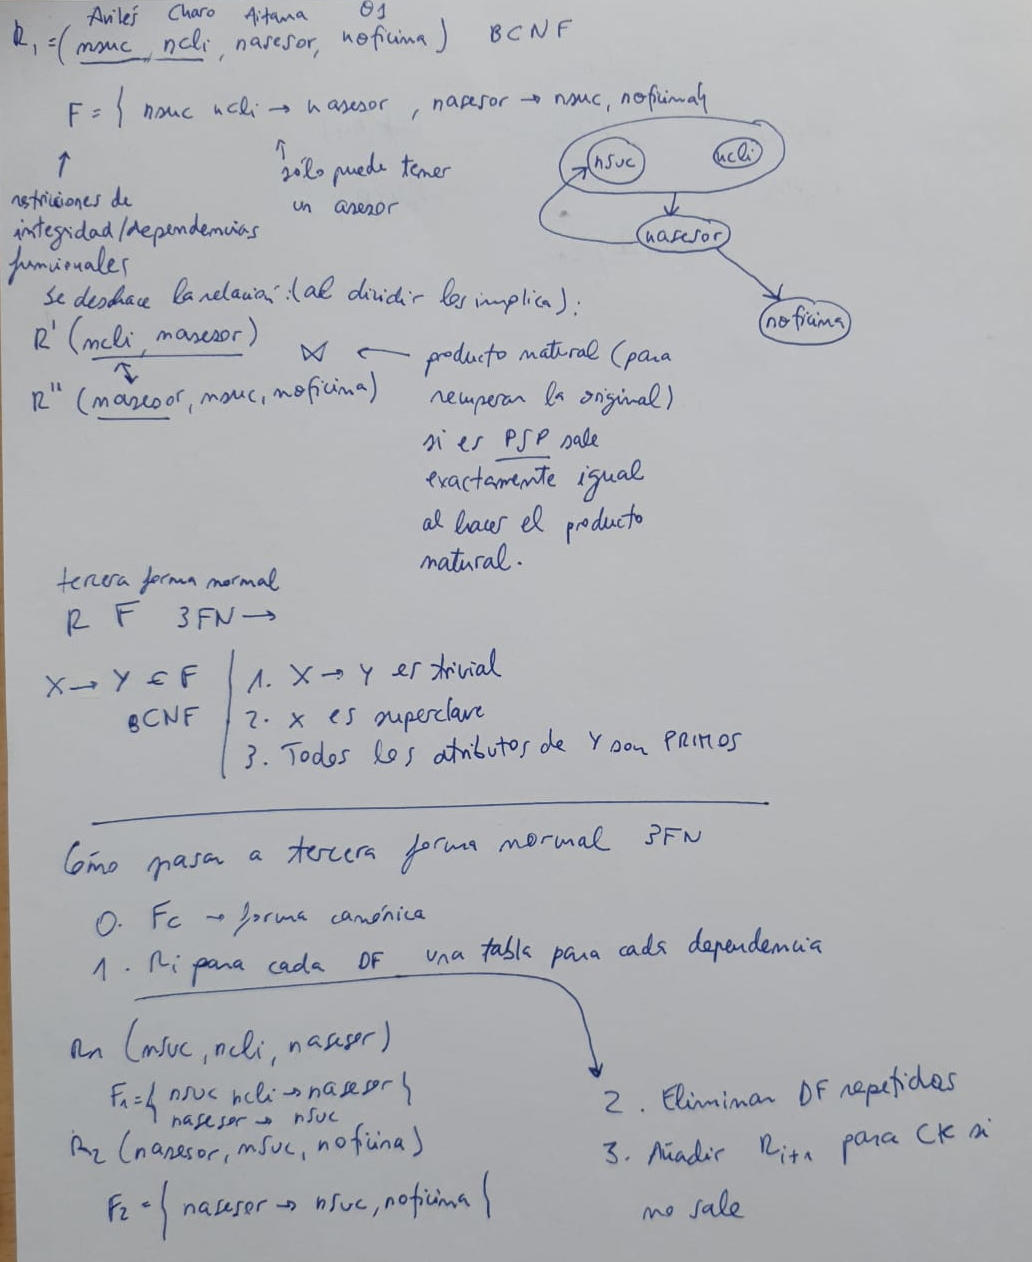 Avilés Charo Aitana 01
R1 = (nsuc, ncli, nasesor, noficina) BCNF
F = { nsuc ncli → nasesor, nasesor → nsuc, noficina}
↑
restricciones de
integridad/dependencias
funcionales
↑
sólo puede tener
un asesor
nsuc
ncli
nasesor
noficina
Se deshace la relación: (al dividir los implica):
R' (ncli, nasesor)
R'' (nasesor, nsuc, noficina)
⋈ ← producto natural (para
recuperar la original)
si es PSP sale
exactamente igual
al hacer el producto
natural.
tercera forma normal
R F 3FN →
X → Y ∈ F
BCNF
1. X → Y es trivial
2. X es superclave
3. Todos los atributos de Y son PRIMOS
Cómo pasar a tercera forma normal 3FN
0. Fc → forma canónica
1. Ri para cada DF una tabla para cada dependencia
R1 (nsuc, ncli, nasesor)
F1 = { nsuc ncli → nasesor }
nasesor → nsuc
R2 (nasesor, nsuc, noficina)
F2 = { nasesor → nsuc, noficina }
2. Eliminar DF repetidas
3. Añadir Ri+1 para CK si
no sale